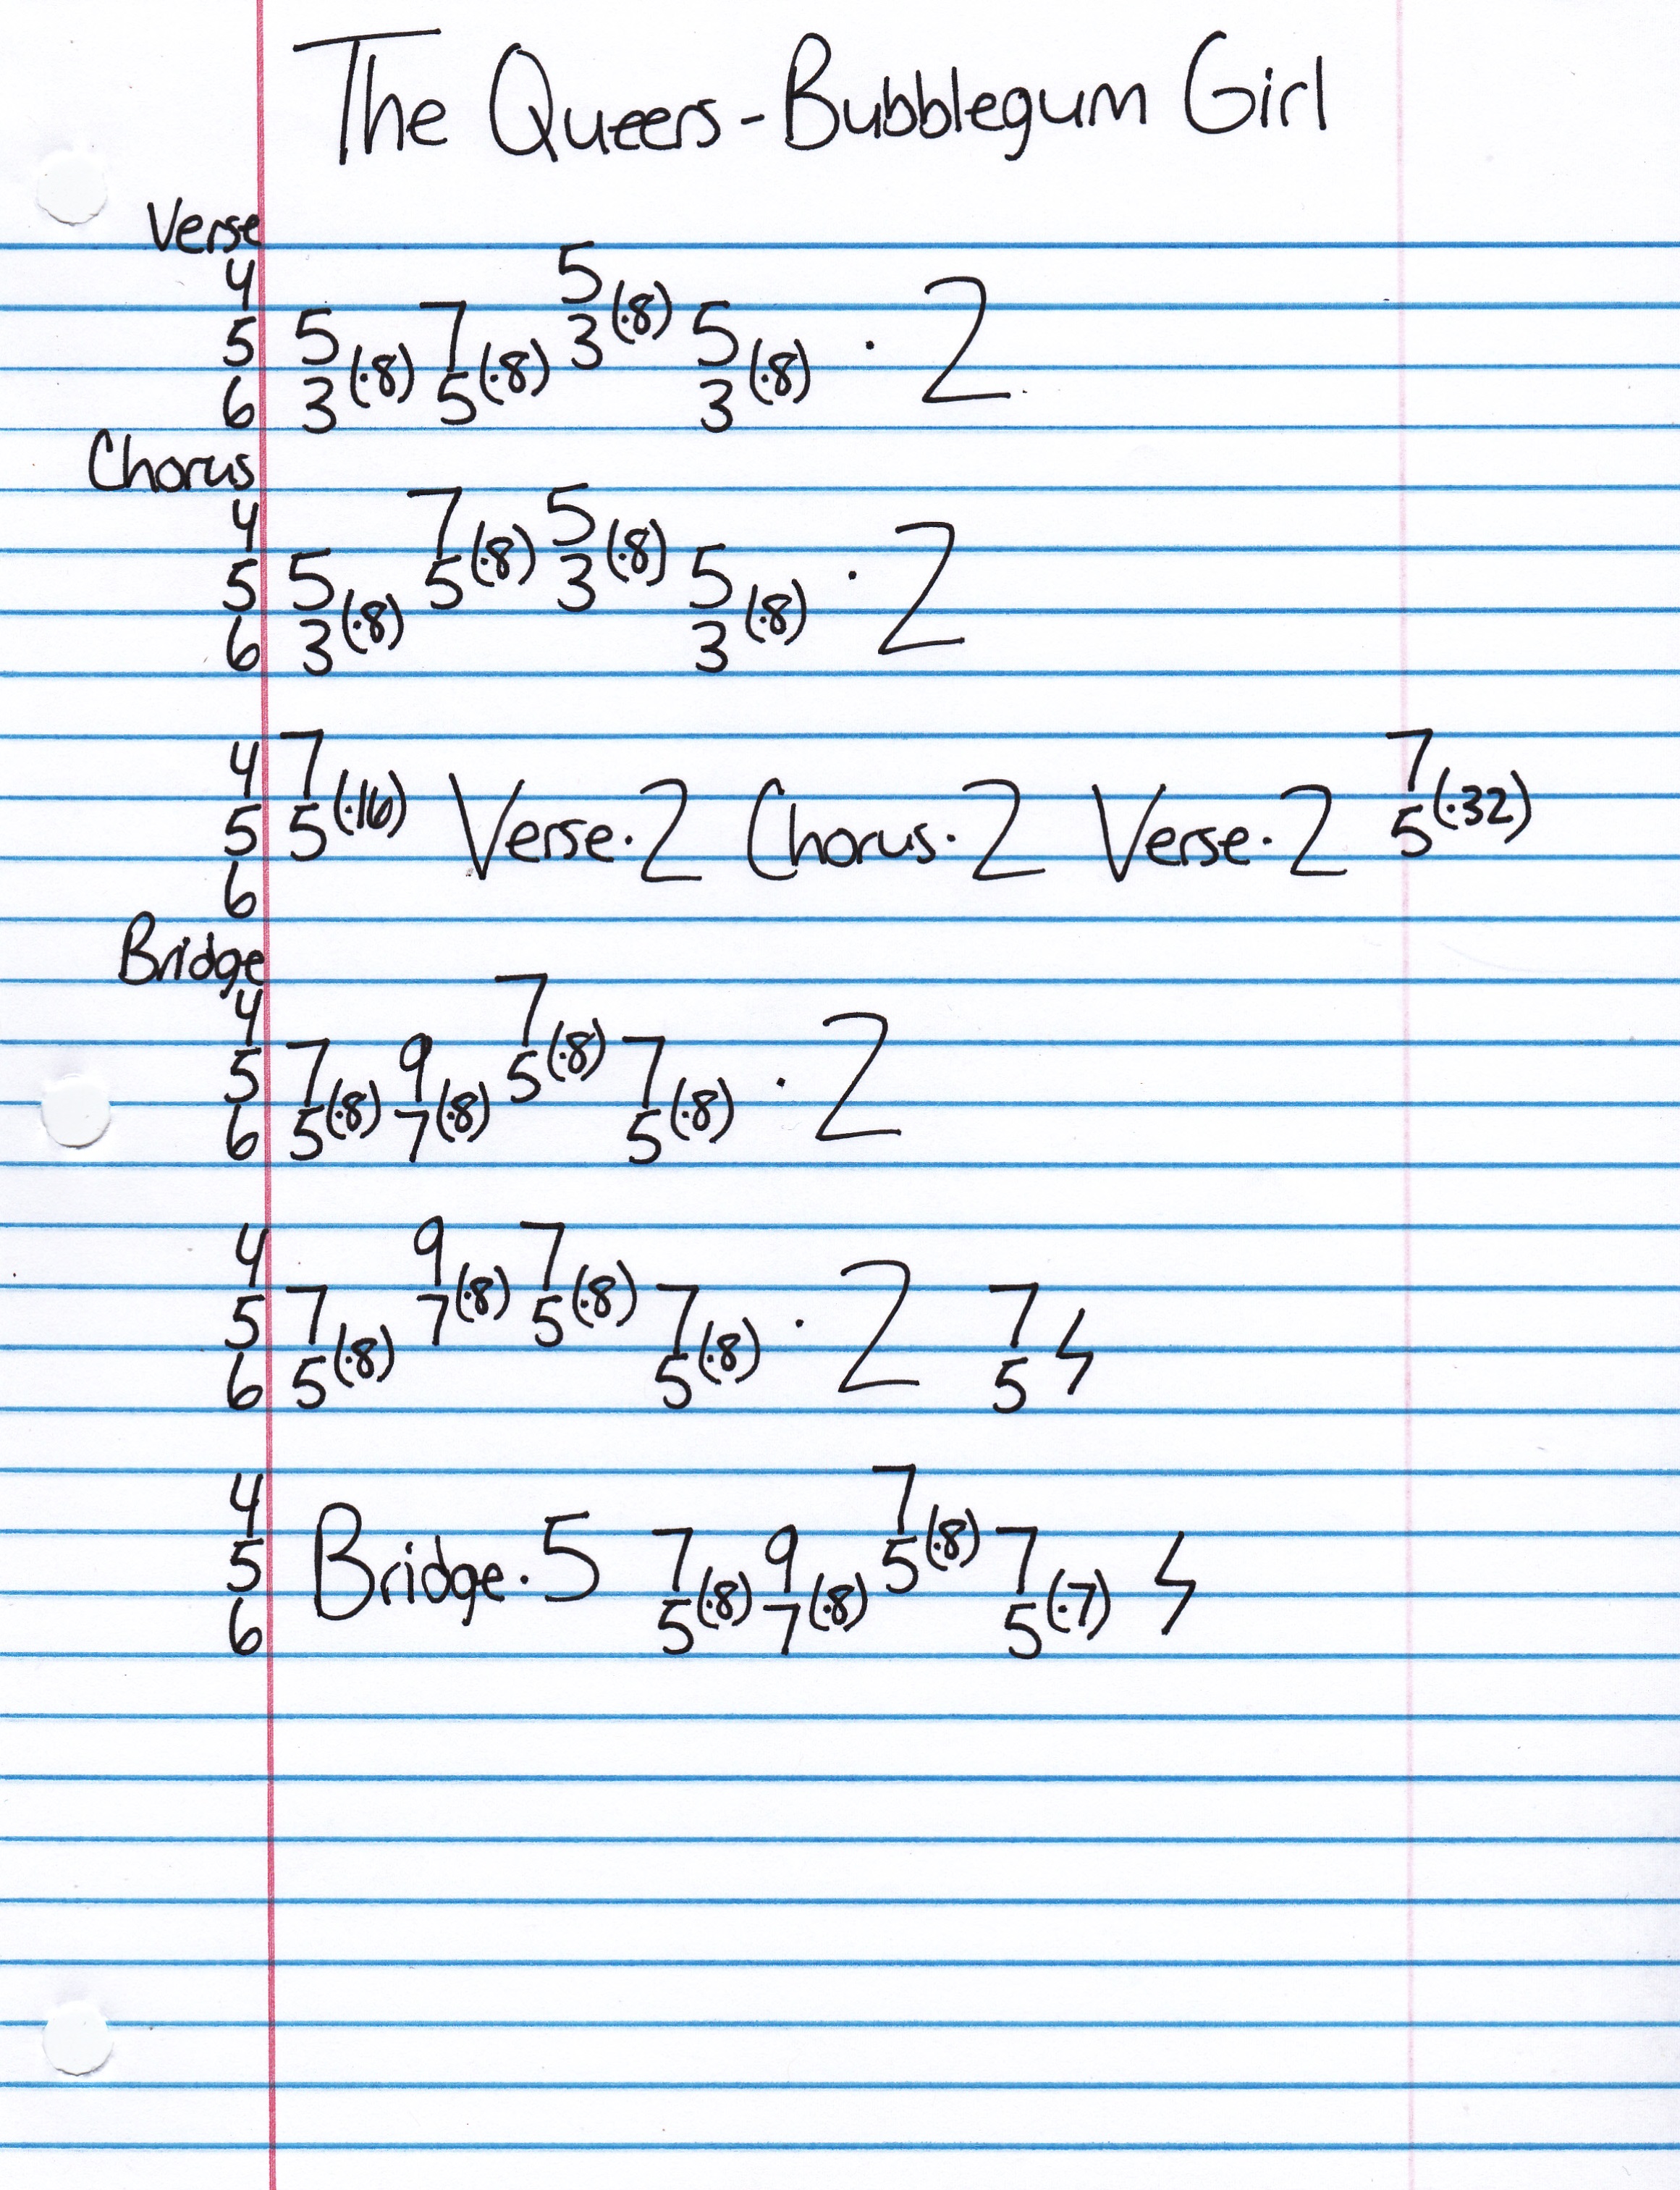 The Queers - Bubblegum Girl
Verse
4 5
5 5 7 3(·8) 5
6 3(·8) 5(·8) 3(·8) · 2
Chorus
4 7 5
5 5 5(·8) 3(·8) 5
6 3(·8) 3(·8) · 2
4 7 7
5 5(·16) Verse·2 Chorus·2 Verse·2 5(·32)
6
Bridge
4 7
5 7 9 5(·8) 7
6 5(·8) 7(·8) 5(·8) · 2
4 9 7
5 7 7(·8) 5(·8) 7 · 2 7
6 5(·8) 5(·8) 5
4 7
5 Bridge·5 7 9 5(·8) 7
6 5(·8) 7(·8) 5(·7)